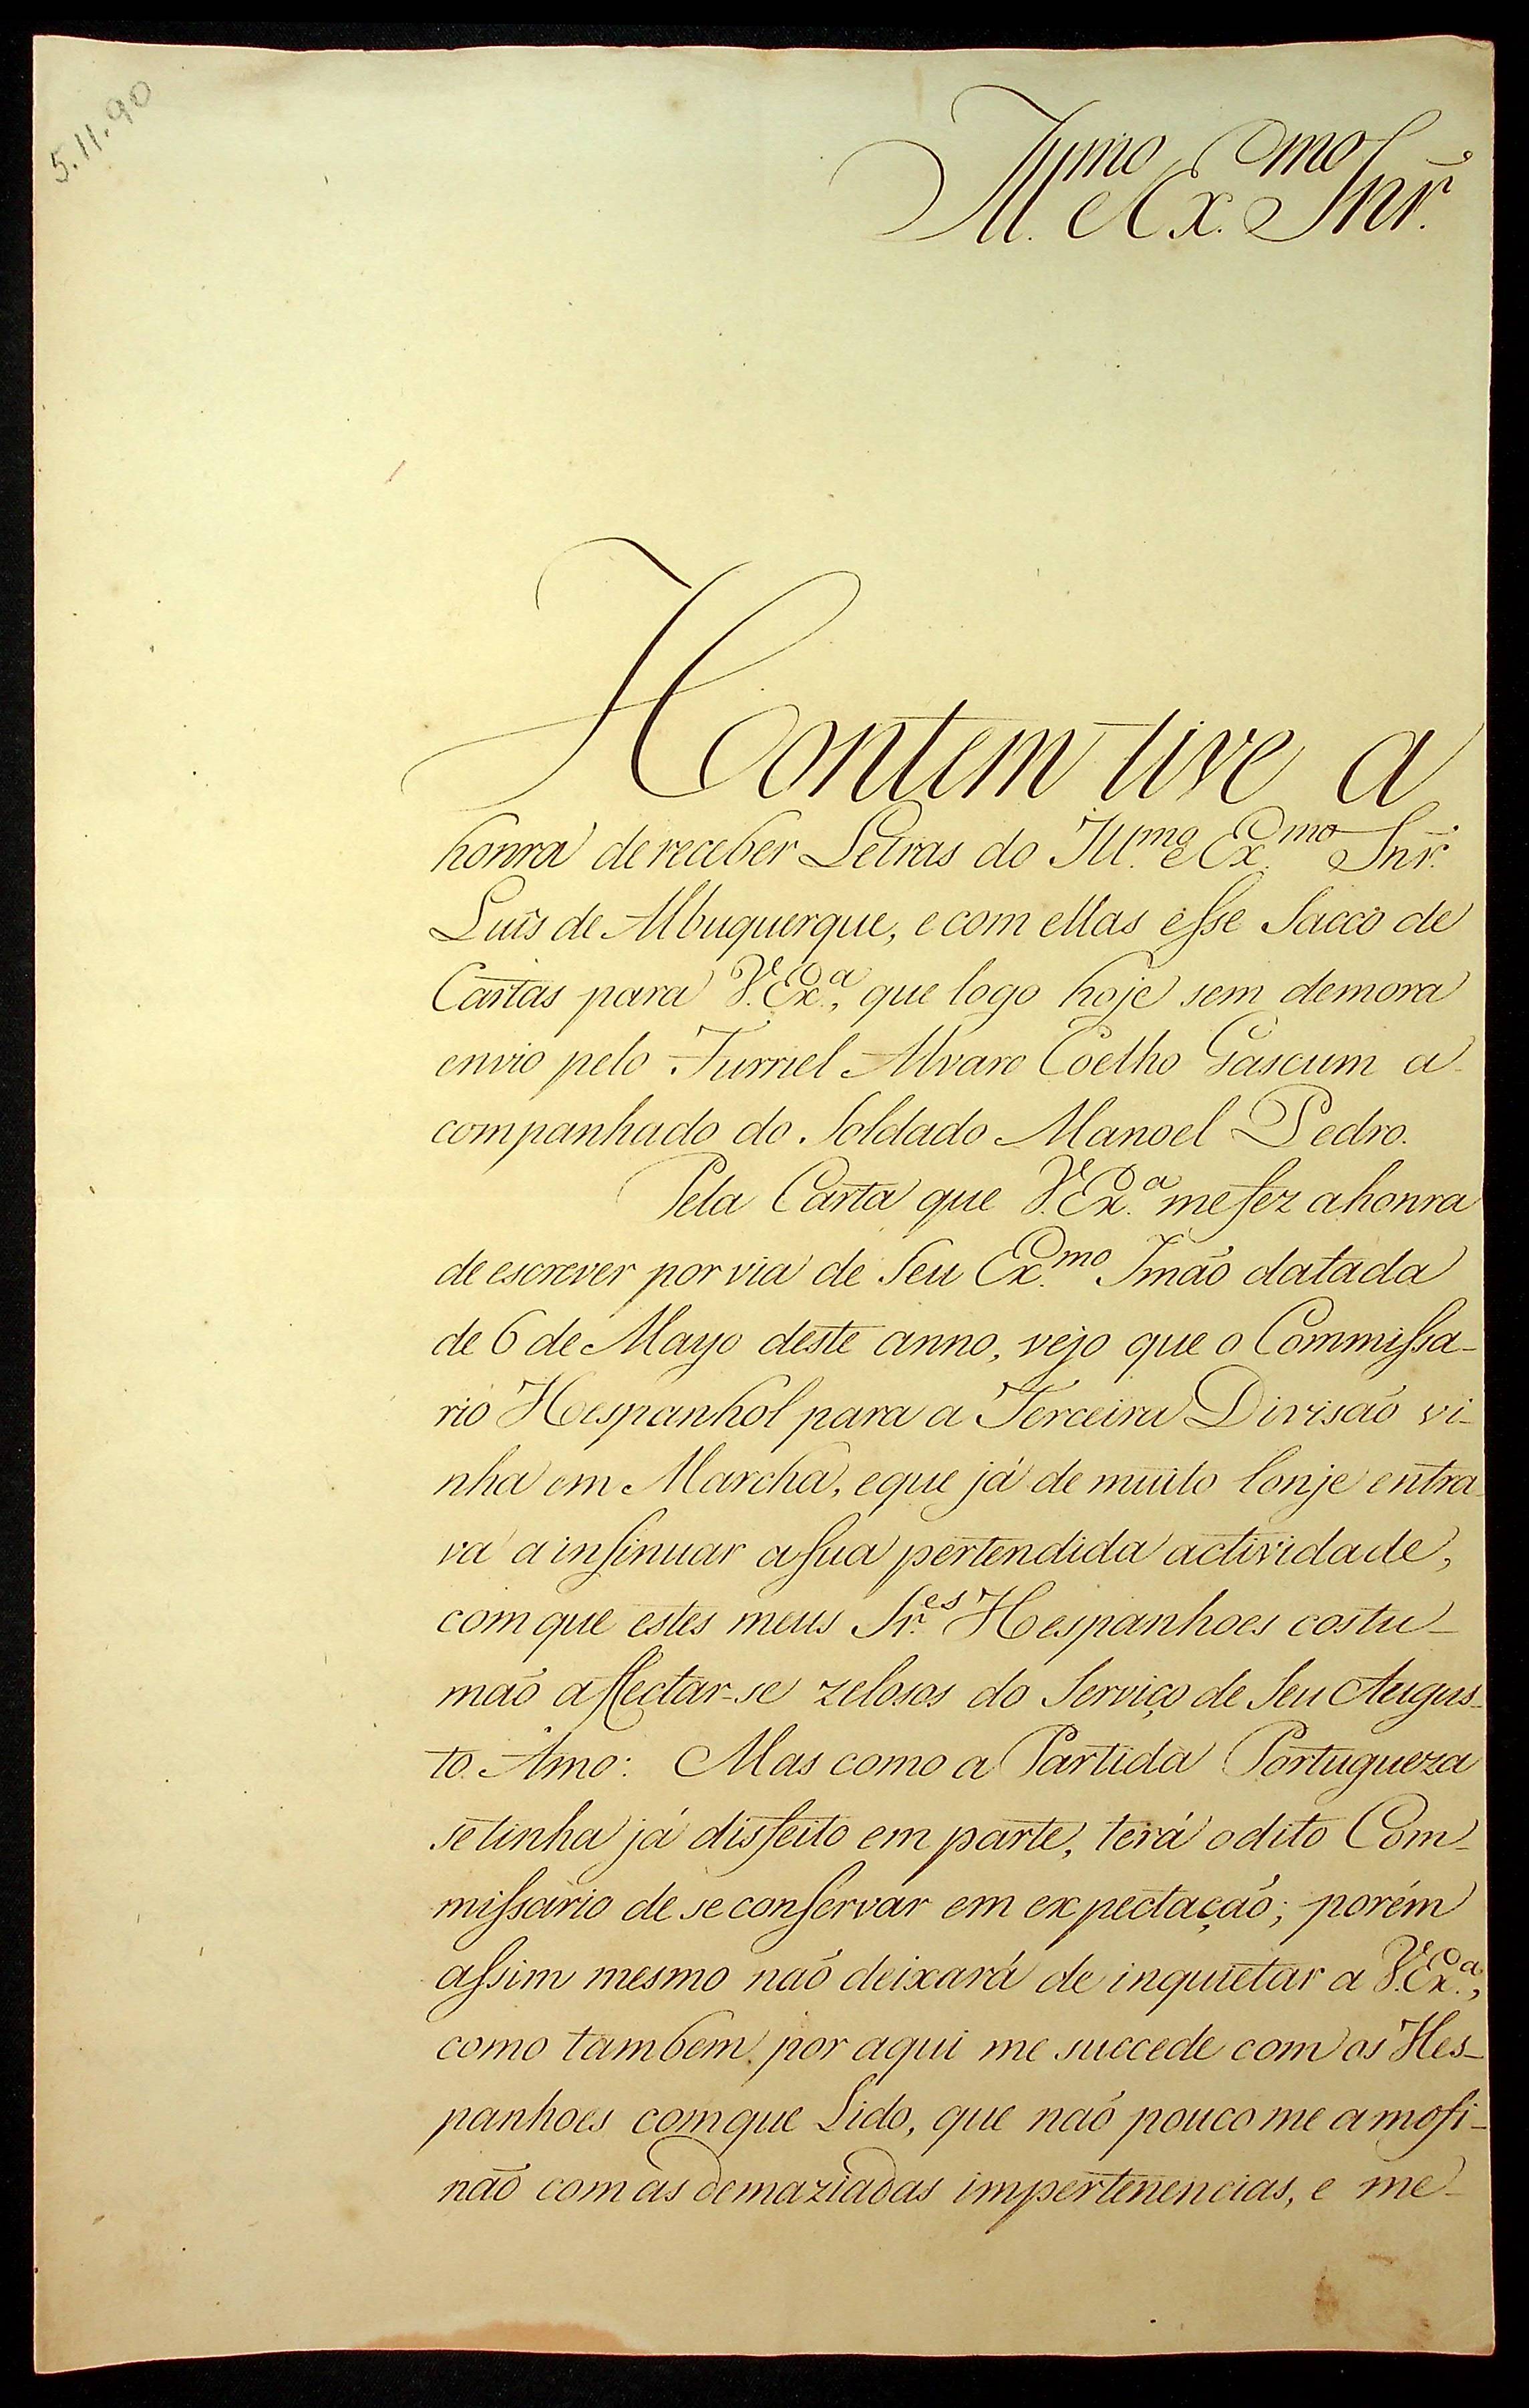 5.11.90
Ill.mo e Ex.mo Snr.
Hontem tive a
honra de receber Letras do Ill.mo e Ex.mo Snr.
Luis de Albuquerque, e com ellas esse Sacco de
Cartas para V. Ex.a, que logo hoje sem demora
envio pelo Furriel Alvaro Coelho Gascum a-
companhado do Soldado Manoel Pedro.
Pela Carta que V. Ex.a me fez a honra
de escrever por via de Seu Ex.mo Imão datada
de 6 de Mayo deste anno, vejo que o Commissa-
rio Hespanhol para a Terceira Divisão vi-
nha em Marcha, e que já de muito lonje entra-
va a insinuar a sua pertendida actividade,
com que estes meus Sr.es Hespanhoes costu-
mão affectar-se zelosos do Serviço de Seu Augus-
to Amo: Mas como a Partida Portugueza
se tinha já disfeito em parte, terá o dito Com-
missario de se conservar em expectação; porém
assim mesmo não deixará de inquietar a V. Ex.a,
como tambem por aqui me succede com os Hes-
panhoes com que Lido, que não pouco me amofi-
não com as demaziadas impertenencias, e me-